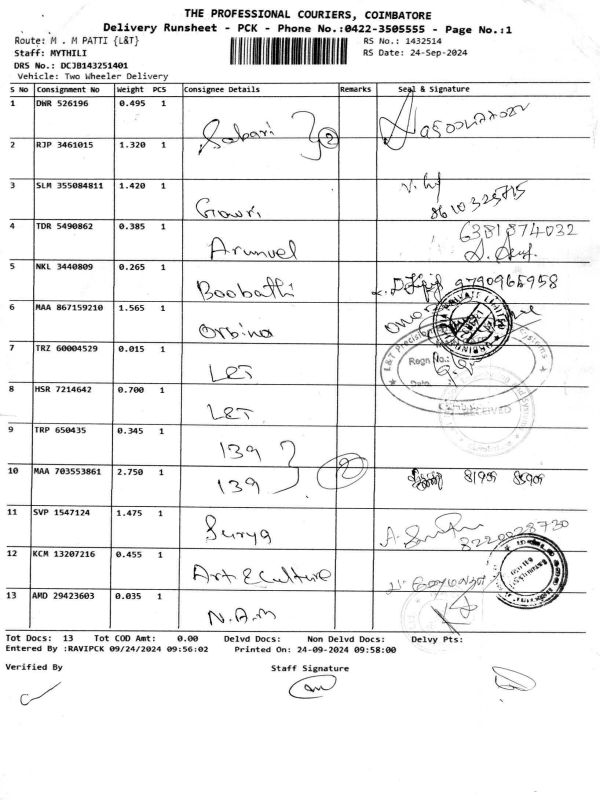 THE PROFESSIONAL COURIERS, COIMBATORE
Delivery Runsheet - PCK - Phone No.:0422-3505555 - Page No.:1
Route: M . M PATTI {L&T}
RS No.: 1432514
Staff: MYTHILI
RS Date: 24-Sep-2024
DRS No.: DCJB143251401
Vehicle: Two Wheeler Delivery
S No Consignment No Weight PCS Consignee Details Remarks Seal & Signature
1 DWR 526196 0.495 1 Sabari 2
2 RJP 3461015 1.320 1
3 SLM 355084811 1.420 1 Gowri 8610325715
4 TDR 5490862 0.385 1 Arumvel 6381874032
5 NKL 3440809 0.265 1 Boobathi 9790965958
6 MAA 867159210 1.565 1 Orbino
7 TRZ 60004529 0.015 1 L&T L&T Precision Regn No.:
Date
8 HSR 7214642 0.700 1 L&T RECEIVED
9 TRP 650435 0.345 1 139
10 MAA 703553861 2.750 1 139 2
11 SVP 1547124 1.475 1 Surya 8220028730
12 KCM 13207216 0.455 1 Art & Culture
13 AMD 29423603 0.035 1 N.A.M
Tot Docs: 13 Tot COD Amt: 0.00 Delvd Docs: Non Delvd Docs: Delvy Pts:
Entered By :RAVIPCK 09/24/2024 09:56:02 Printed On: 24-09-2024 09:58:00
Verified By Staff Signature